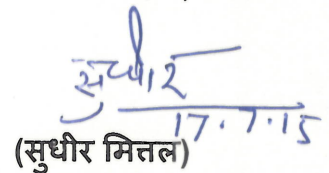 सुधीर
17.7.15
(सुधीर मित्तल)